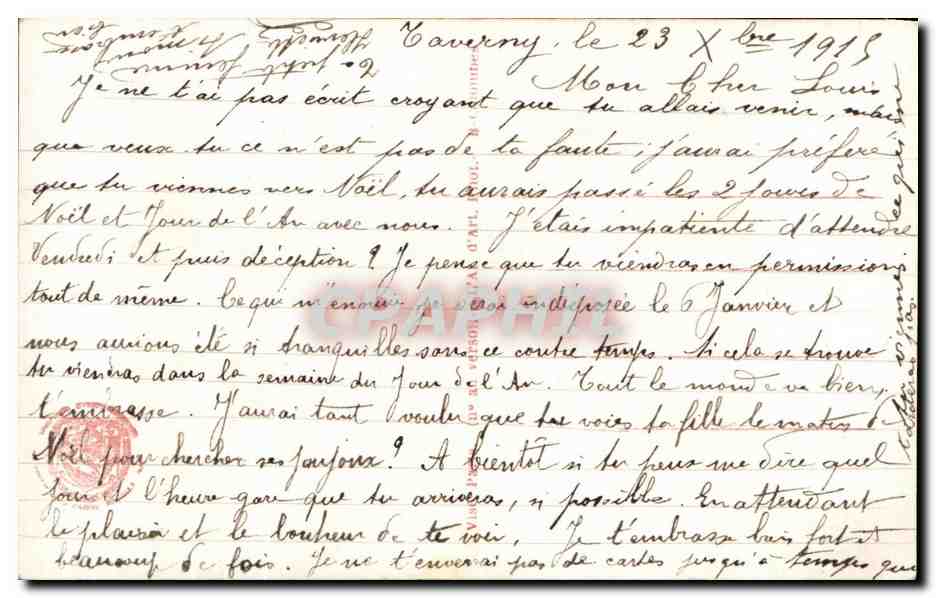 Taverny, le 23 Xbre 1915
Mon Cher Louis
Je ne t'ai pas écrit croyant que tu allais venir, mais
que veux tu ce n'est pas de ta faute ; j'aurai préféré
que tu viennes vers Noël, tu aurais passé les 2 jours de
Noël et Jour de l'An avec nous. J'étais impatiente d'attendre
Vendredi et puis déception ? Je pense que tu viendras en permission
tout de même. Ce qui m'ennuie je serai indisposée le 6 Janvier et
nous aurions été si tranquilles sans ce contre temps. Si cela se trouve
tu viendras dans la semaine du Jour de l'An. Tout le monde va bien,
t'embrasse. J'aurai tant voulu que tu voies ta fille le matin de
Noël pour chercher ses joujoux ? A bientôt si tu peux me dire quel
jour et l'heure gare que tu arriveras, si possible. En attendant
le plaisir et le bonheur de te voir, Je t'embrasse bien fort et
beaucoup de fois. Je ne t'enverrai pas de cartes jusqu'à temps que
tardera pas.
ta petite femme
Simone
CPAPHIL